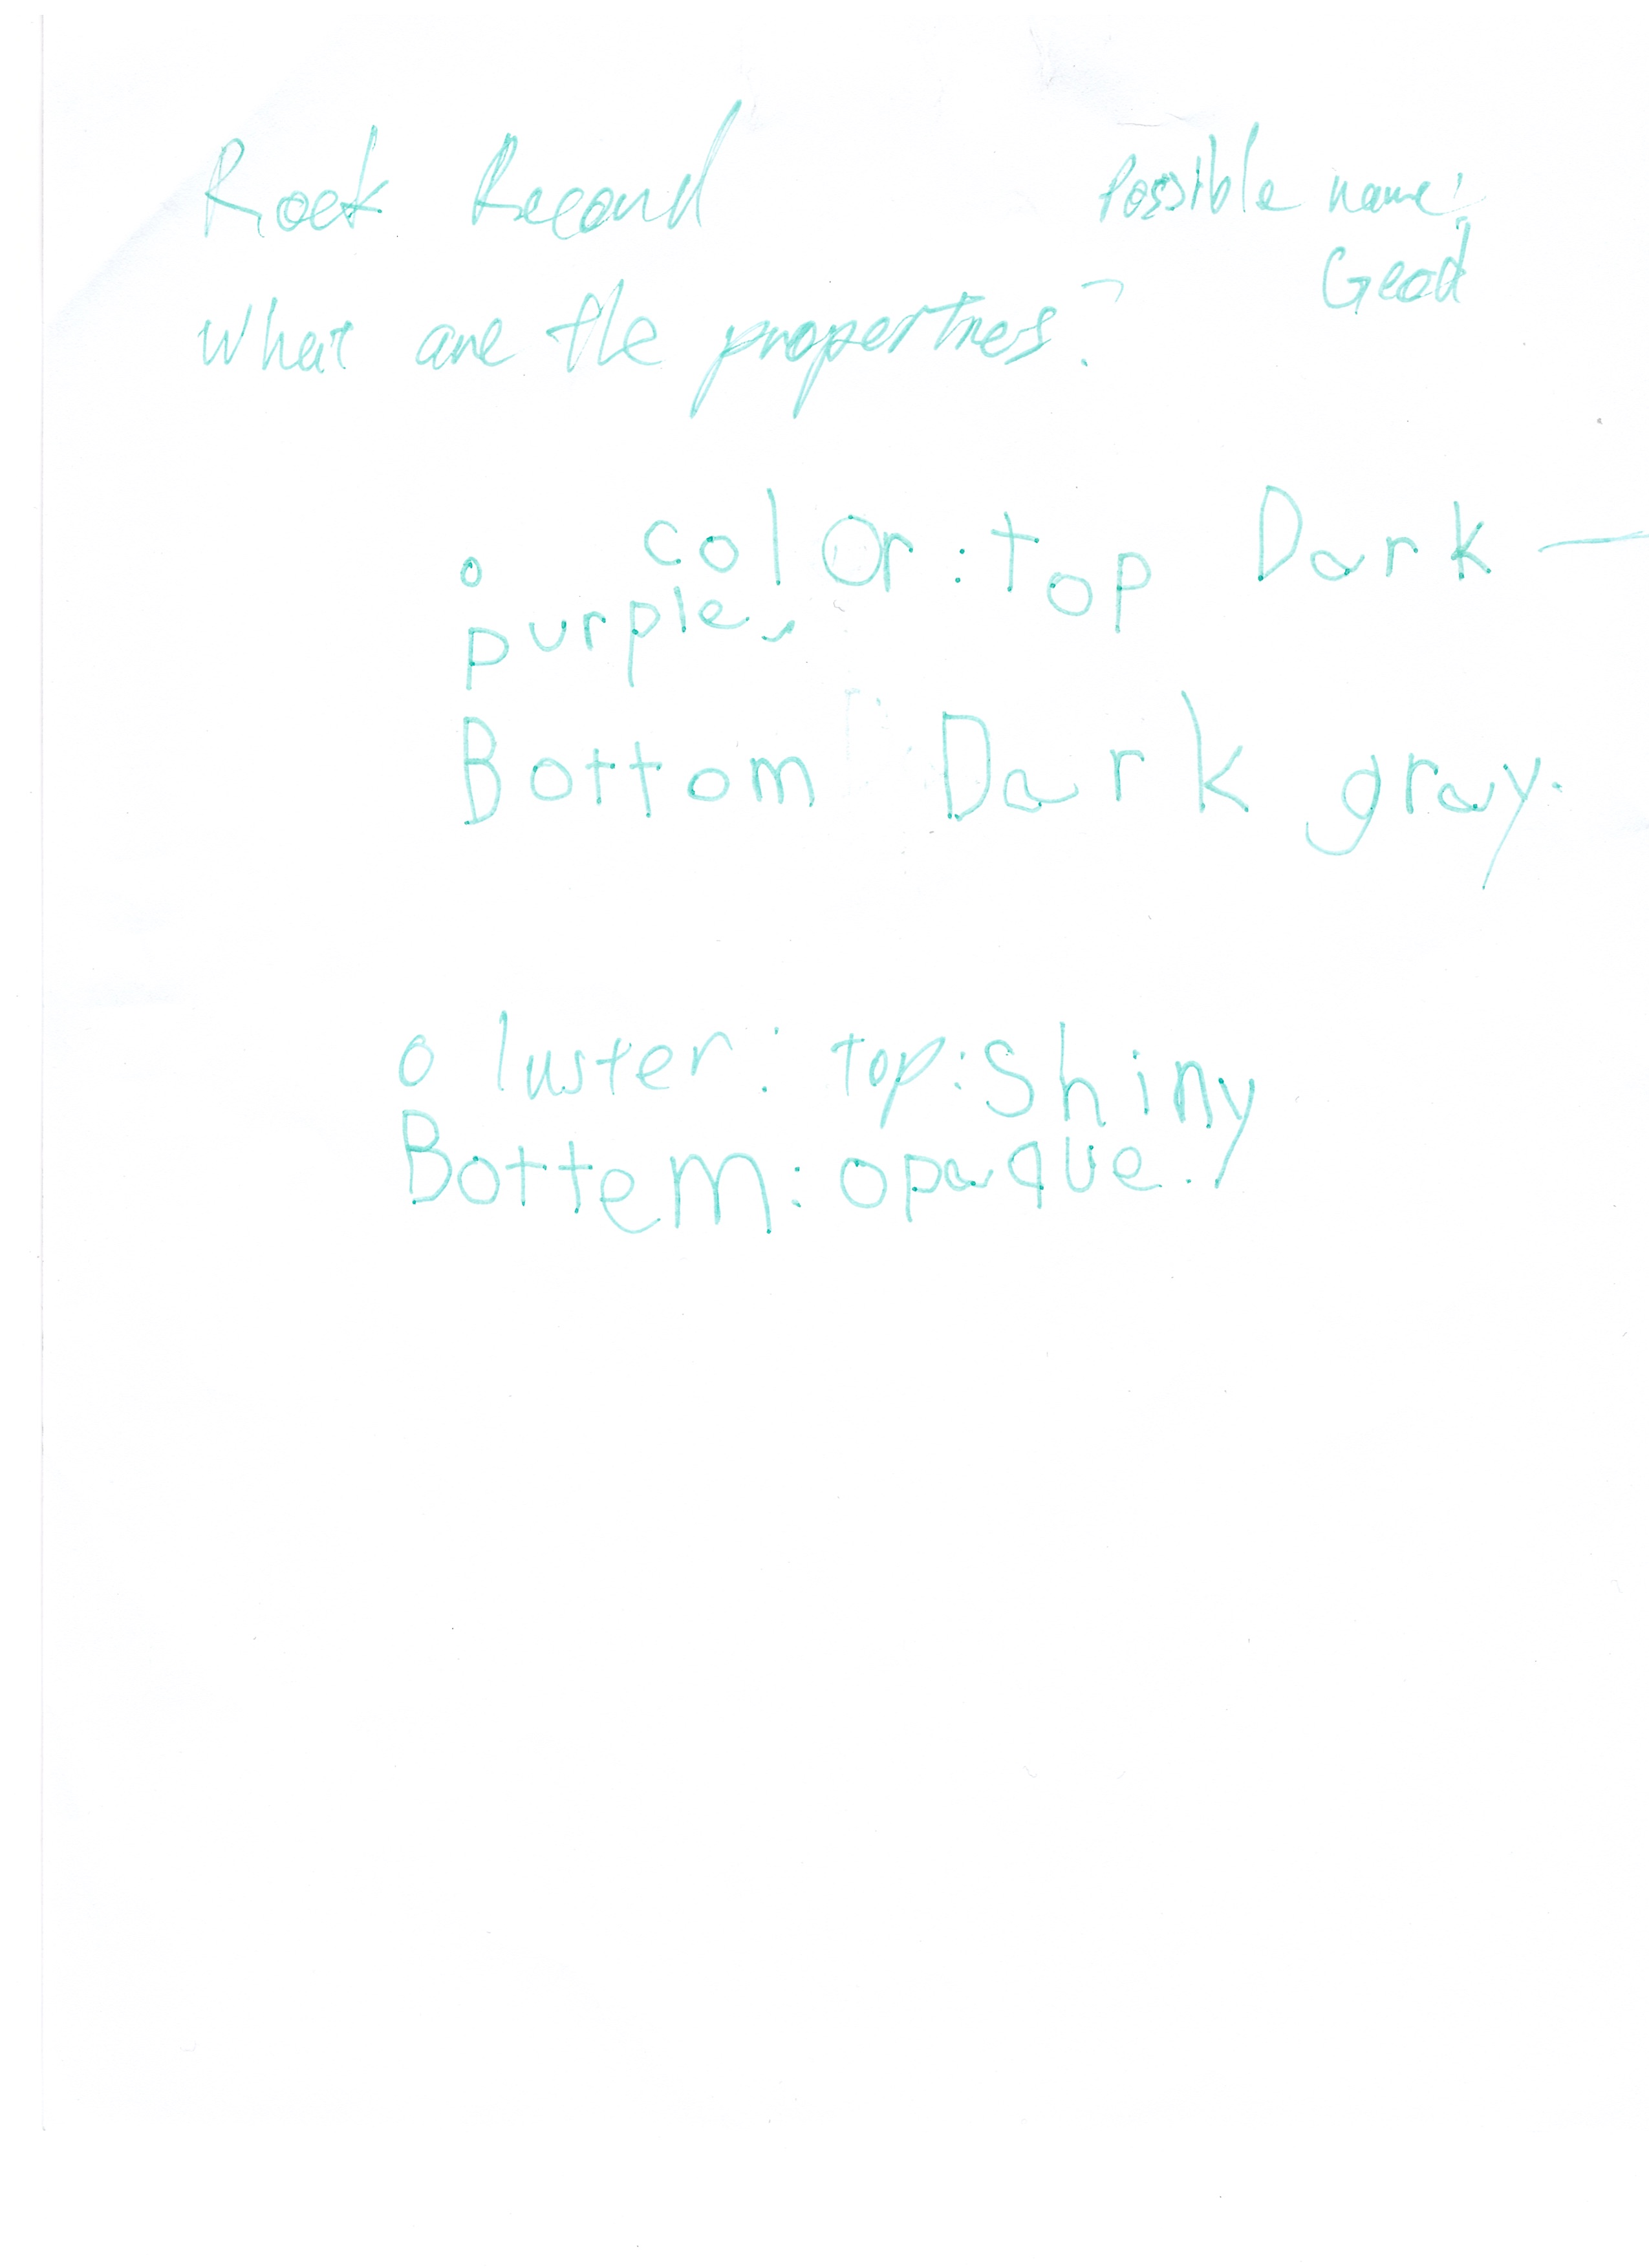 Rock Record
Possible name:
Geod
What are the properties?
o color: top Dark —
purple,
Bottom: Dark gray.
o luster: top: shiny
Bottem: opaque.